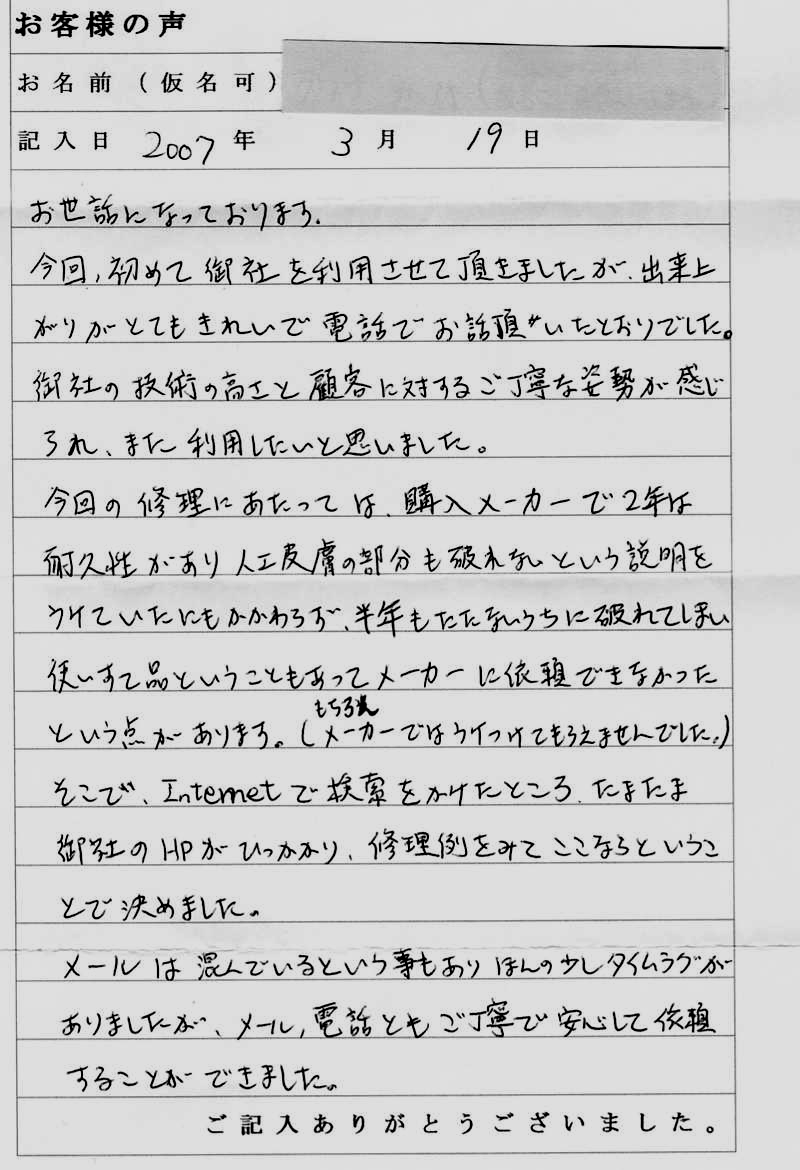 お客様の声
お名前（仮名可）
記入日 2007年 3月 19日
お世話になっております.
今回,初めて御社を利用させて頂きましたが、出来上
がりがとてもきれいで電話でお話頂いたとおりでした。
御社の技術の高さと顧客に対するご丁寧な姿勢が感じ
られ、また利用したいと思いました。
今回の修理にあたっては、購入メーカーで2年は
耐久性があり人工皮膚の部分も破れないという説明を
うけていたにもかかわらず、半年もたたないうちに破れてしまい
使いすて品ということもあってメーカーに依頼できなかった
という点があります。(もちろんメーカーではうけつけてもらえませんでした.)
そこで、Internetで検索をかけたところ、たまたま
御社のHPがひっかかり、修理例をみてここならというこ
とで決めました。
メールは混んでいるという事もありほんの少しタイムラグが
ありましたが、メール,電話ともご丁寧で安心して依頼
することができました。
ご記入ありがとうございました。